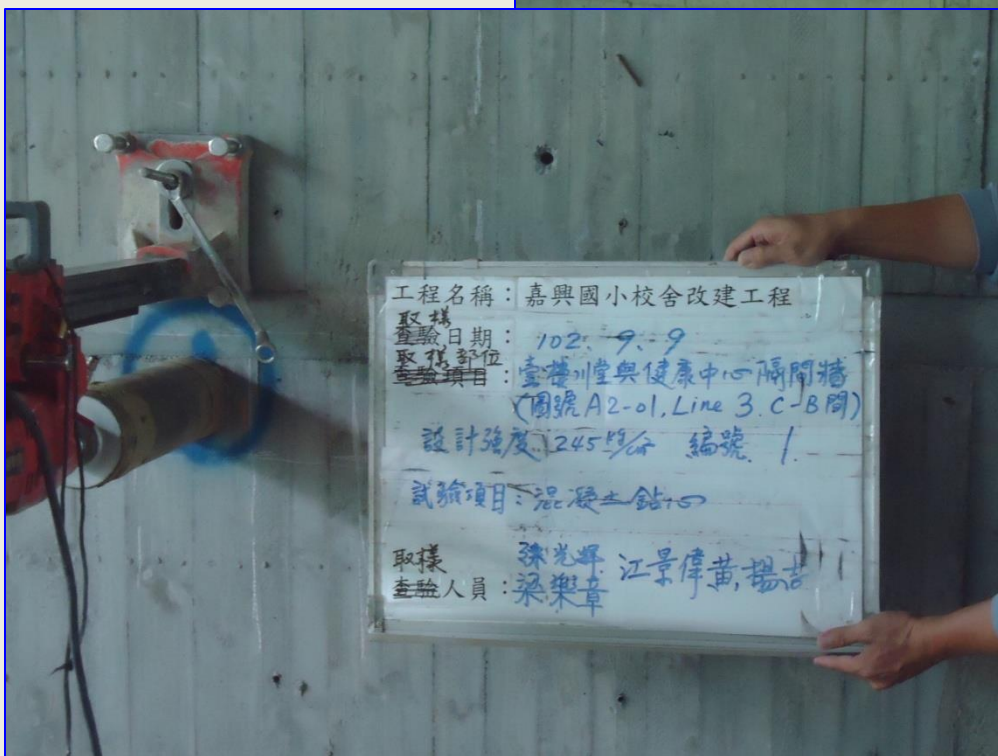 工程名稱：嘉興國小校舍改建工程
取樣
查驗日期： 102. 9. 9
取樣部位
查驗項目：壹樓川堂與健康中心隔間牆
(圖號A2-01, Line 3. C-B間)
設計強度 245 編號. 1.
試驗項目：混凝土鉆心
取樣
查驗人員：梁樂章 江景偉